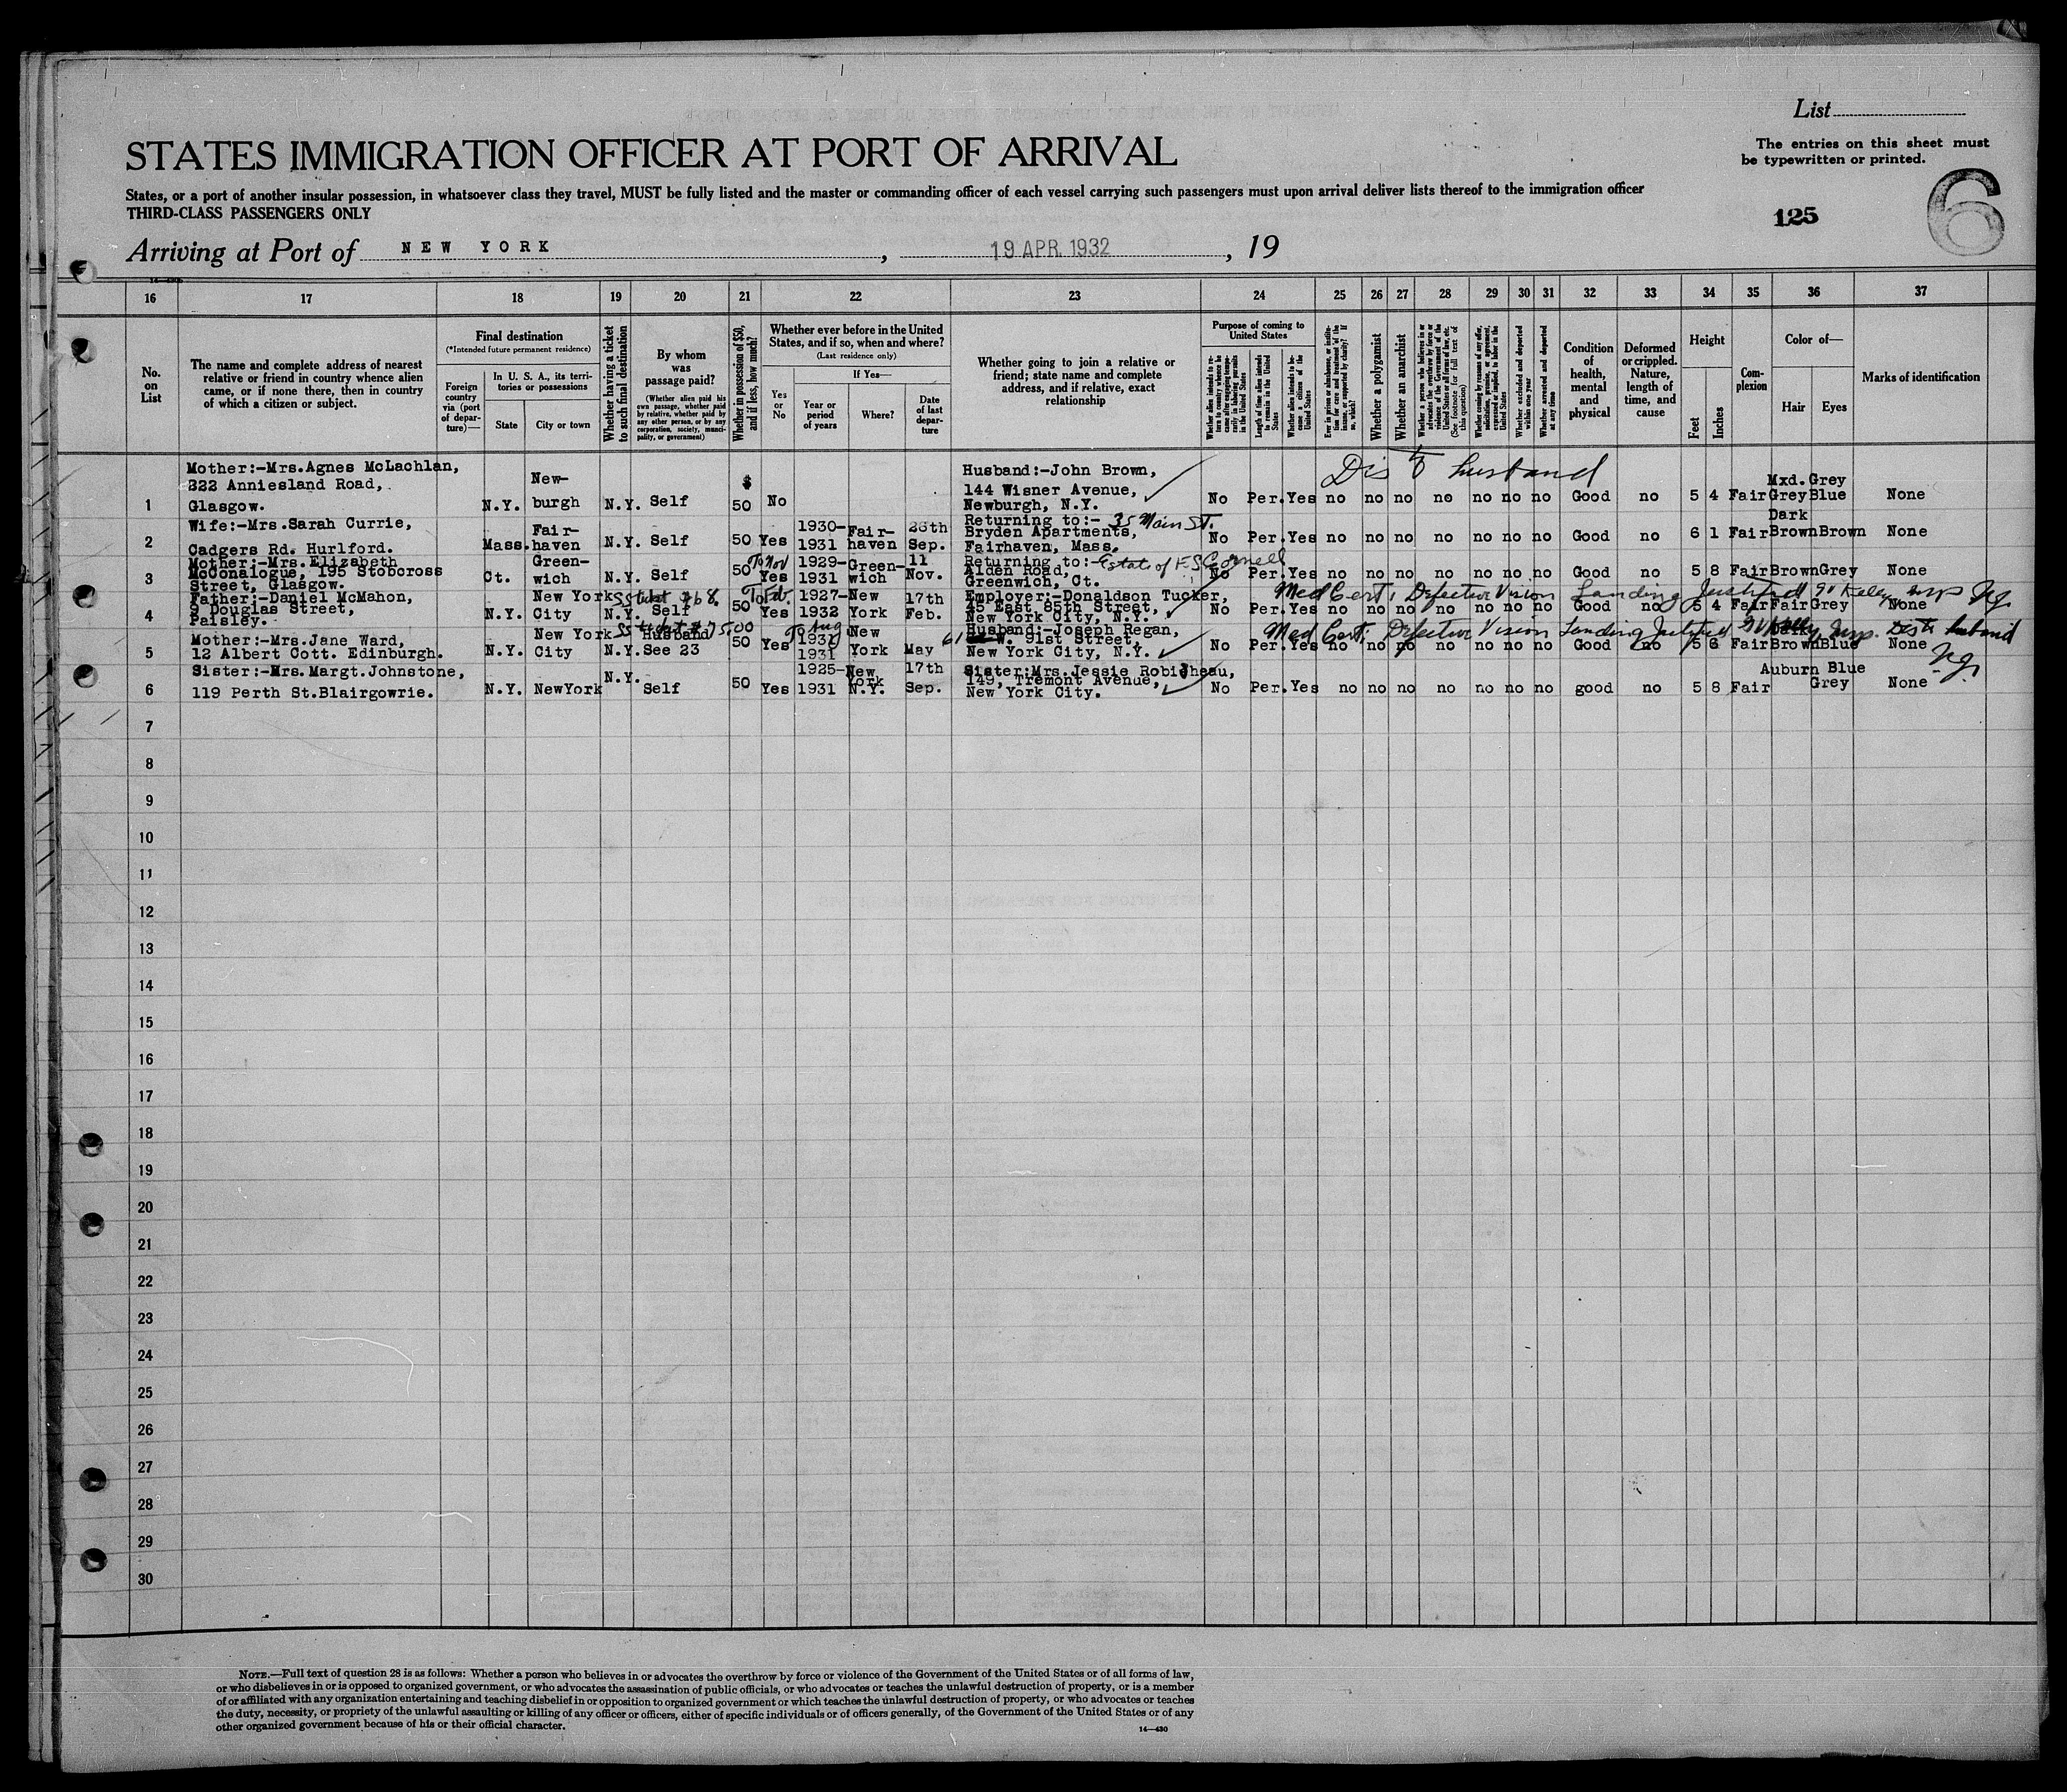 List
The entries on this sheet must
be typewritten or printed.
STATES IMMIGRATION OFFICER AT PORT OF ARRIVAL
States, or a port of another insular possession, in whatsoever class they travel, MUST be fully listed and the master or commanding officer of each vessel carrying such passengers must upon arrival deliver lists thereof to the immigration officer
THIRD-CLASS PASSENGERS ONLY
125
6
Arriving at Port of NEW YORK, 19 APR. 1932, 19
16 17 18 19 20 21 22 23 24 25 26 27 28 29 30 31 32 33 34 35 36 37
No.
on
List
The name and complete address of nearest
relative or friend in country whence alien
came, or if none there, then in country
of which a citizen or subject.
Final destination
(*Intended future permanent residence)
Foreign
country
via (port
of depar-
ture)—
In U. S. A., its terri-
tories or possessions
State City or town
Whether having a ticket
to such final destination
By whom
was
passage paid?
(Whether alien paid his
own passage, whether paid
by relative, whether paid by
any other person, or by any
corporation, society, munici-
pality, or government)
Whether in possession of $50,
and if less, how much?
Whether ever before in the United
States, and if so, when and where?
(Last residence only)
Yes
or
No
If Yes—
Year or
period
of years
Where?
Date
of last
depar-
ture
Whether going to join a relative or
friend; state name and complete
address, and if relative, exact
relationship
Purpose of coming to
United States
Length of time alien intends
to remain in the United
States
Whether alien intends to be-
come a citizen of the
United States
Whether a polygamist
Whether an anarchist
Whether excluded and deported
within one year
Whether arrested and deported
at any time
Condition
of
health,
mental
and
physical
Deformed
or crippled.
Nature,
length of
time, and
cause
Height
Feet Inches
Com-
plexion
Color of—
Hair Eyes
Marks of identification
Mother:-Mrs.Agnes McLachlan, New- $ Husband:-John Brown, Dis to husband Mxd.Grey
322 Anniesland Road, 144 Wisner Avenue,
1 Glasgow. N.Y. burgh N.Y. Self 50 No Newburgh, N.Y. No Per. Yes no no no no no no no Good no 5 4 Fair Grey Blue None
Wife:-Mrs.Sarah Currie, Fair- 1930- Fair- 28th Returning to:- 35 Main ST. Dark
2 Cadgers Rd. Hurlford. Mass. haven N.Y. Self 50 Yes 1931 haven Sep. Bryden Apartments, No Per. Yes no no no no no no no Good no 6 1 Fair Brown Brown None
Fairhaven, Mass.
Mother:-Mrs. Elizabeth Green- To Nov 1929- Green- 11 Returning to:- Estate of
McConalogue, 195 Stobcross Alden Road,
3 Street, Glasgow. Ct. wich N.Y. Self 50 Yes 1931 wich Nov. Greenwich, Ct. No Per. Yes no no no no no no no Good no 5 8 Fair Brown Grey None
Father:-Daniel McMahon, New York To Feb. 1927- New 17th Employer:-Donaldson Tucker, Med Cert. Defective Vision Landing Justified
9 Douglas Street, 45 East 85th Street,
4 Paisley. N.Y. City N.Y. Self 50 Yes 1932 York Feb. New York City, N.Y. No Per. Yes no no no no no no no Good no 5 4 Fair Fair Grey None
New York Husband To Aug New Husband:-Joseph Regan, Med Cert. Defective Vision Landing Justified husband
Mother:-Mrs.Jane Ward, W. 91st Street,
5 12 Albert Cott. Edinburgh. N.Y. City N.Y. See 23 50 Yes 1931 York May New York City, N.Y. No Per. Yes no no no no no no no Good no 5 6 Fair Brown Blue None
Sister:-Mrs.Margt.Johnstone, N.Y. 1925- New 17th Sister:Mrs.Jessie Auburn Blue
149, Tremont Avenue,
6 119 Perth St.Blairgowrie. N.Y. NewYork Self 50 Yes 1931 York N.Y. Sep. New York City. No Per. Yes no no no no no no no good no 5 8 Fair Grey None
7
8
9
10
11
12
13
14
15
16
17
18
19
20
21
22
23
24
25
26
27
28
29
30
NOTE.—Full text of question 28 is as follows: Whether a person who believes in or advocates the overthrow by force or violence of the Government of the United States or of all forms of law,
or who disbelieves in or is opposed to organized government, or who advocates the assassination of public officials, or who advocates or teaches the unlawful destruction of property, or is a member
of or affiliated with any organization entertaining and teaching disbelief in or opposition to organized government or which teaches the unlawful destruction of property, or who advocates or teaches
the duty, necessity, or propriety of the unlawful assaulting or killing of any officer or officers, either of specific individuals or of officers generally, of the Government of the United States or of any
other organized government because of his or their official character.
14—430